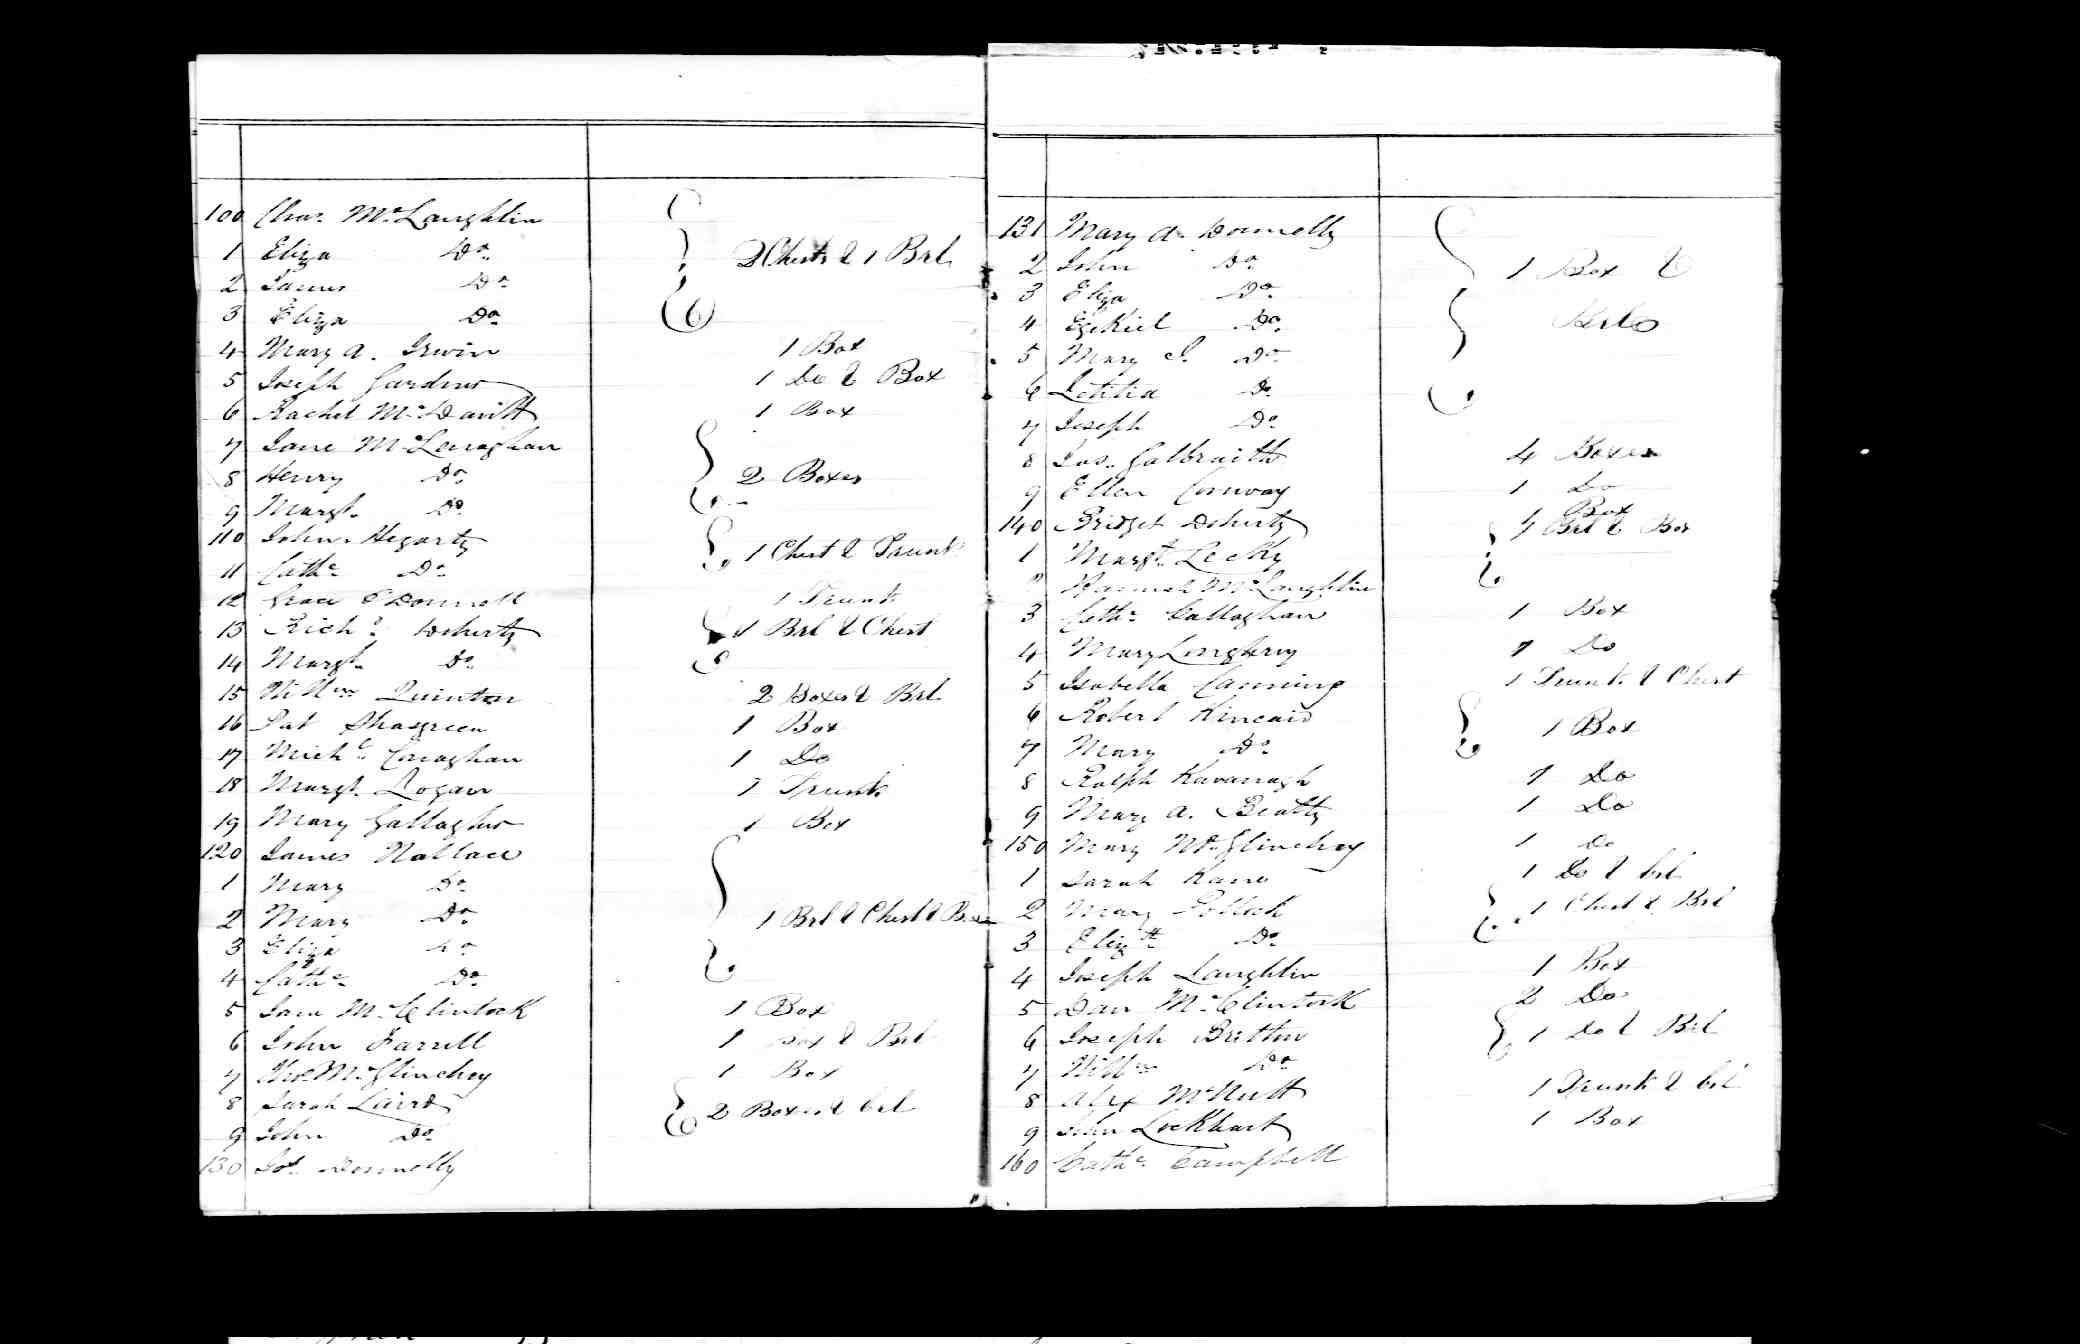 100 Chas. McLaughlin
1 Eliza Do.
2 James Do. 2 Chests & 1 Brl
3 Eliza Do.
4 Mary A. Irwin 1 Box
5 Joseph Gardner 1 Do & Box
6 Rachel McDavitt 1 Box
7 Jane McLenaghan
8 Henry Do. 2 Boxes
9 Margt. Do.
110 John Hegarty 1 Chest & Trunk
11 Cathe. Do.
12 Grace O'Donnell 1 Trunk
13 Richd. Doherty 1 Brl & Chest
14 Margt. Do.
15 Willm Quinton 2 Boxes & Brl
16 Pat Shasgreen 1 Box
17 Michl. Conaghan 1 Do
18 Margt. Logan 1 Trunk
19 Mary Gallagher 1 Box
120 James Wallace
1 Mary Do.
2 Mary Do. 1 Brl & Chest & Box
3 Eliza Do
4 Cathe. Do.
5 McClintock 1 Box
6 John Farrell 1 Box & Brl
7 McGlinchey 1 Box
8 Sarah Laird 2 Boxes & brl
9 John Do.
130 Donnelly
131 Mary A. Donnelly
2 John Do. 1 Box &
3 Eliza Do.
4 Ezekiel Do. Brls
5 Mary J. Do.
6 Letitia Do.
7 Joseph Do.
8 Jas. Galbraith 4 Boxes
9 Ellen Conway 1 Do
140 Bridget Doherty 1 Box
1 Margt. Lecky 1 Brl & Box
2 Hannah McLaughlin
3 Cathe. Callaghan 1 Box
4 Mary Loughrey 1 Do
5 Isabella Canning 1 Trunk & Chest
6 Robert Kincaid 1 Box
7 Mary Do.
8 Ralph Kavanagh 1 Do
9 Mary A. Beatty 1 Do
150 Mary McGlinchey 1 Do
1 Sarah Kane 1 Do & brl
2 Mary Pollock 1 Chest & Brl
3 Elizth. Do.
4 Joseph Laughlin 1 Box
5 Dan McClintock 2 Do
6 Joseph Britton 1 Do & Brl
7 Willm Do.
8 Alex McNutt 1 Trunk & brl
9 John Lockhart 1 Box
160 Cathe. Campbell